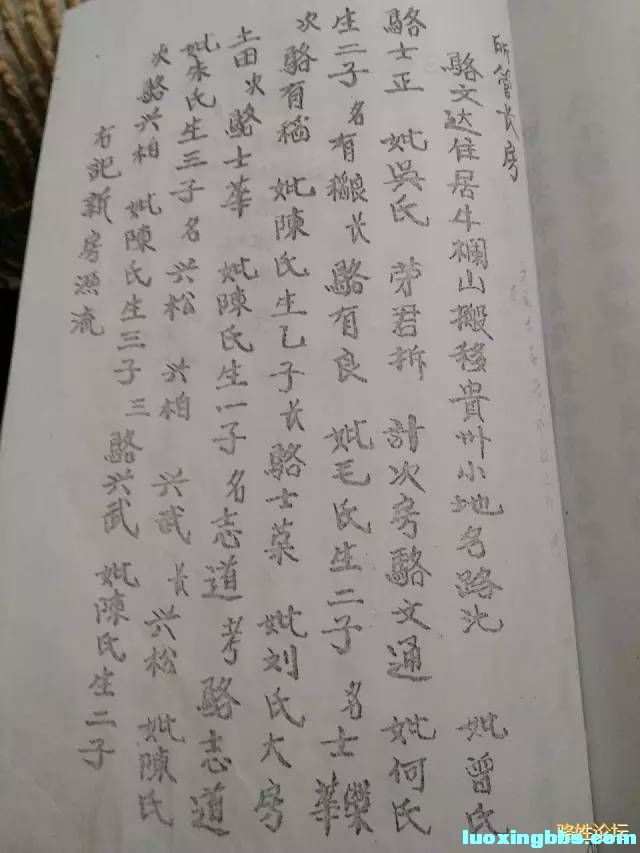 所管长房
駱文达住居牛欄山搬移貴州小地名路沈 妣曾氏
駱士正 妣吳氏 茅君拆 計次房駱文通 妣何氏
生二子 名有稲良 长駱有良 妣毛氏生二子 名士榮華
次駱有稲 妣陳氏生乙子长駱士荣 妣刘氏大房
土田次駱士華 妣陳氏生一子名志道 考駱志道
妣朱氏生三子名兴松 兴柏 兴武 长兴松 妣陳氏
次駱兴柏 妣陳氏生三子 三駱兴武 妣陳氏生二子
右記新房源流
骆姓论坛
luoxingbbs.com